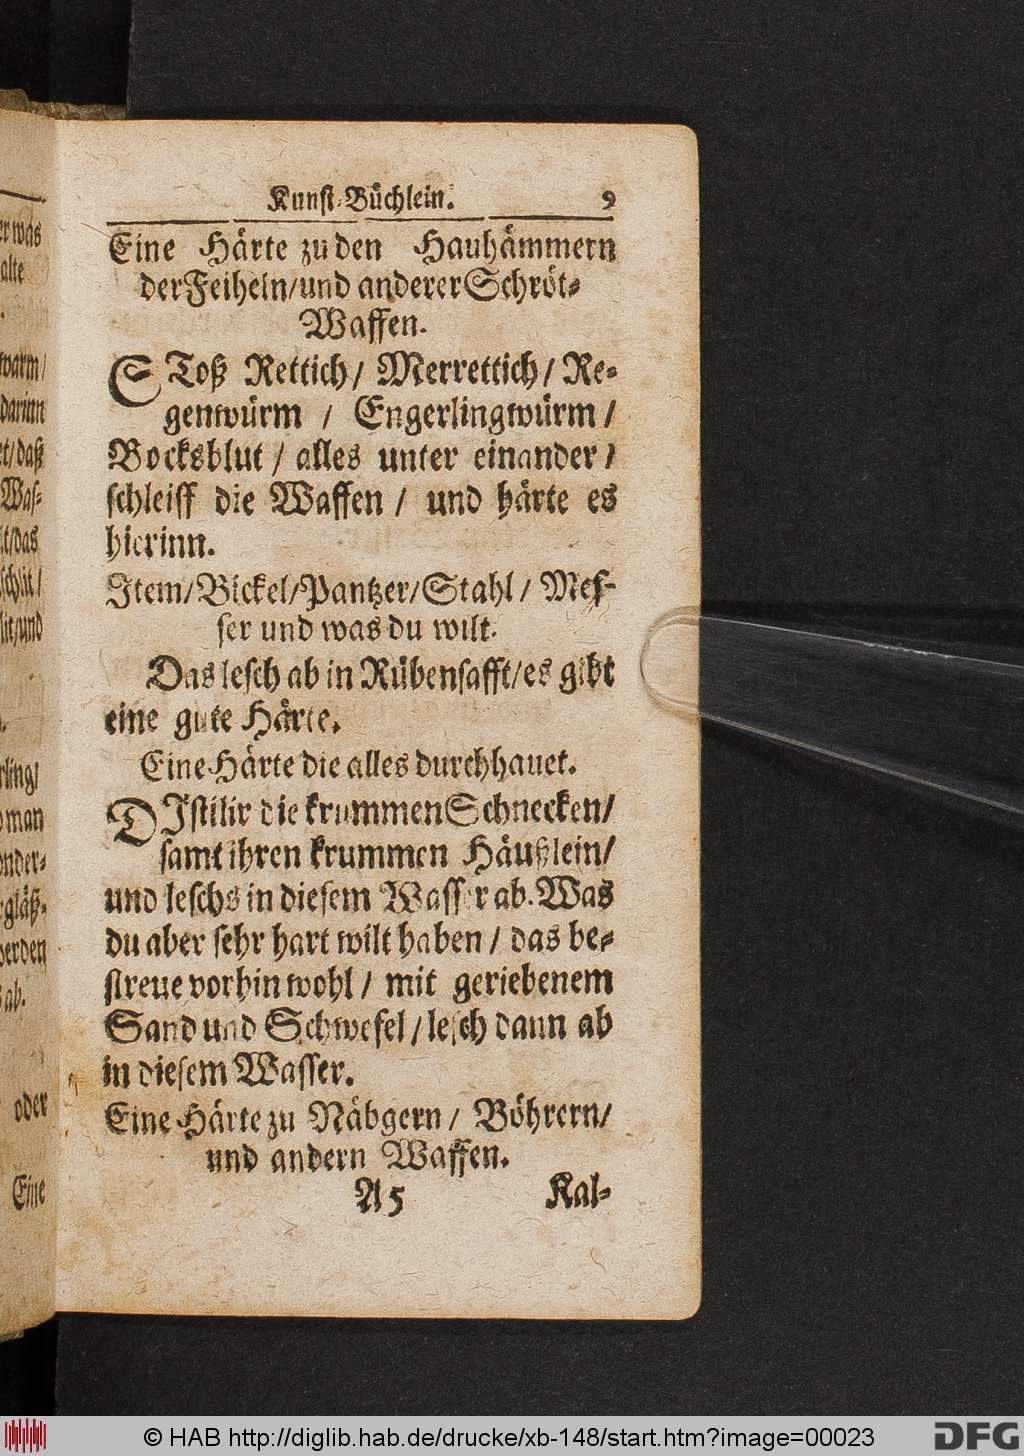 Kunst-Büchlein. 9
Eine Härte zu den Hauhämmern
der Feiheln/und anderer Schröt-
Waffen.
SToß Rettich/ Merrettich/ Re-
genwürm / Engerlingwürm /
Bocksblut / alles unter einander /
schleiff die Waffen / und härte es
hierinn.
Item/Bickel/Pantzer/Stahl / Mes-
ser und was du wilt.
Das lesch ab in Rübensafft/es gibt
eine gute Härte.
Eine Härte die alles durchhauet.
DIstilir die krummen Schnecken/
samt ihren krummen Häußlein/
und leschs in diesem Wasser ab. Was
du aber sehr hart wilt haben / das be-
streue vorhin wohl / mit geriebenem
Sand und Schwefel / lesch dann ab
in diesem Wasser.
Eine Härte zu Näbgern / Böhrern/
und andern Waffen.
A5 Kal-
er was
alte
warm/
darinn
et/daß
Was-
it/das
schlit/
lit/und
rling/
man
onder-
rgläß-
werden
ab.
oder
Eine
© HAB http://diglib.hab.de/drucke/xb-148/start.htm?image=00023
DFG